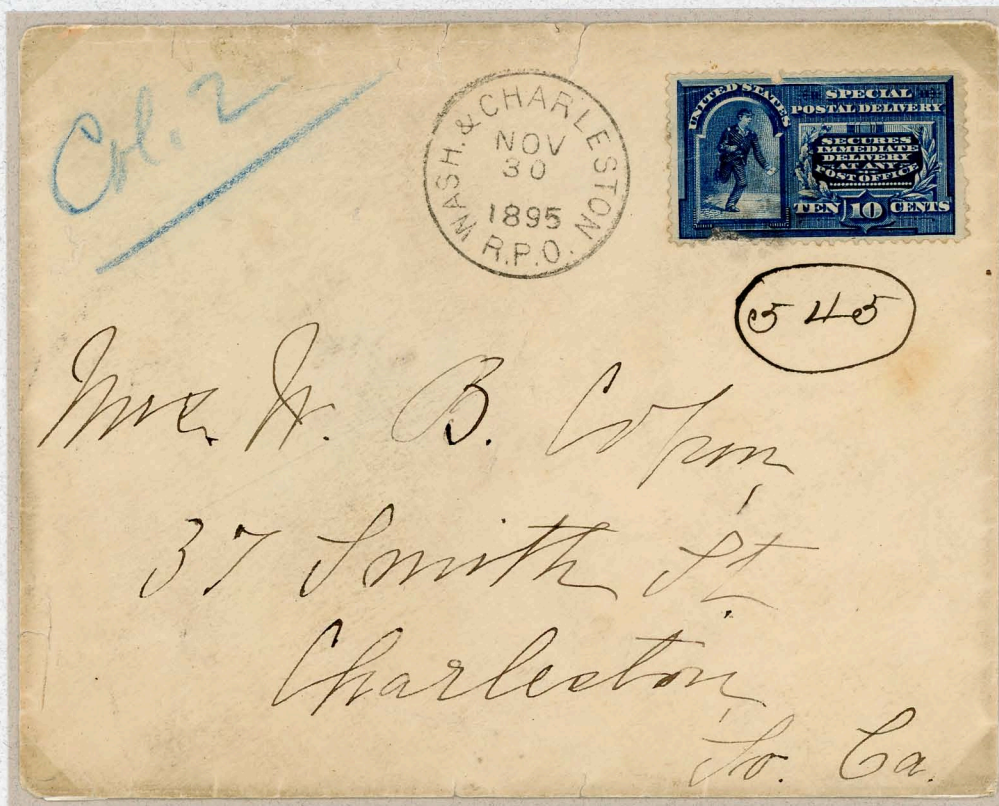 Col. 2
WASH. & CHARLESTON R.P.O.
NOV
30
1895
UNITED STATES
SPECIAL
POSTAL DELIVERY
SECURES
IMMEDIATE
DELIVERY
AT ANY
POST OFFICE
TEN 10 CENTS
545
Mrs. W. B.
37 Smith St.
Charleston,
So. Ca.